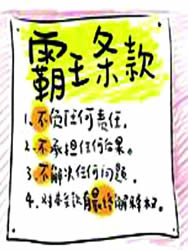 霸王条款
1、不负任何责任。
2、不承担任何后果。
3、不解决任何问题。
4、对本条款有最终解释权。